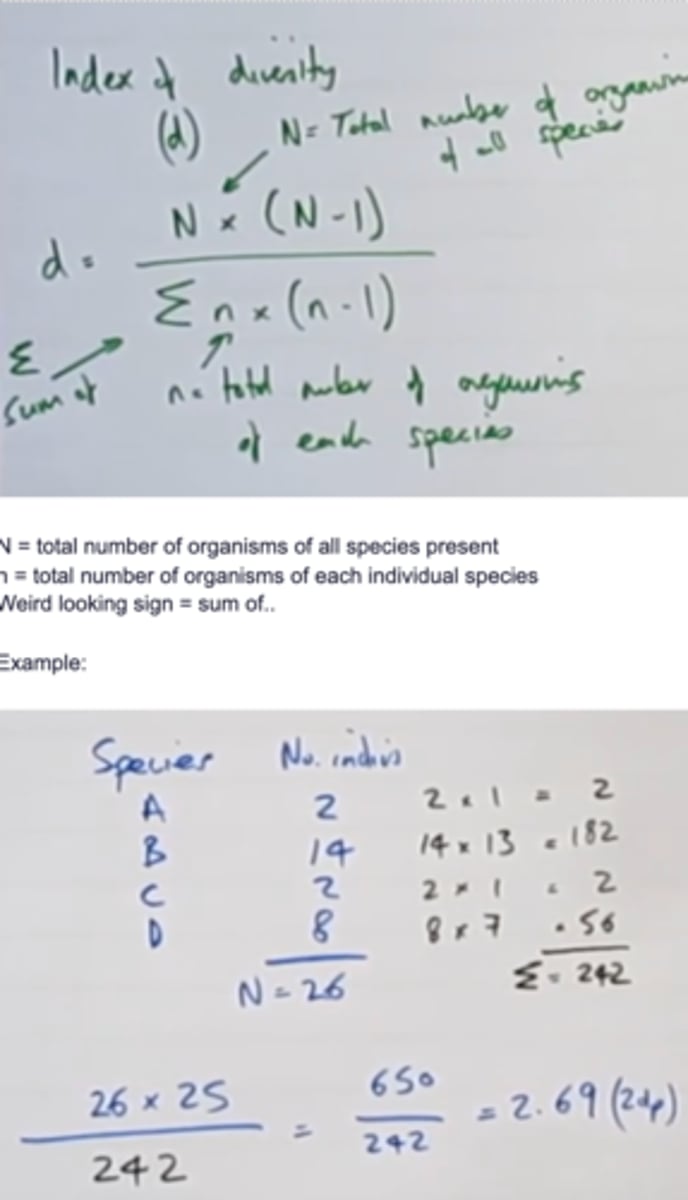 Index of diversity
(d)
N = Total number of organism
of all species
d = N × (N-1)
Σ n × (n-1)
Σ
sum of
n = total number of organisms
of each species
N = total number of organisms of all species present
n = total number of organisms of each individual species
Weird looking sign = sum of..
Example:
Species No. indivs
A 2 2 × 1 = 2
B 14 14 × 13 = 182
C 2 2 × 1 = 2
D 8 8 × 7 = 56
N = 26 Σ = 242
26 × 25 = 650 = 2.69 (2dp)
242 242